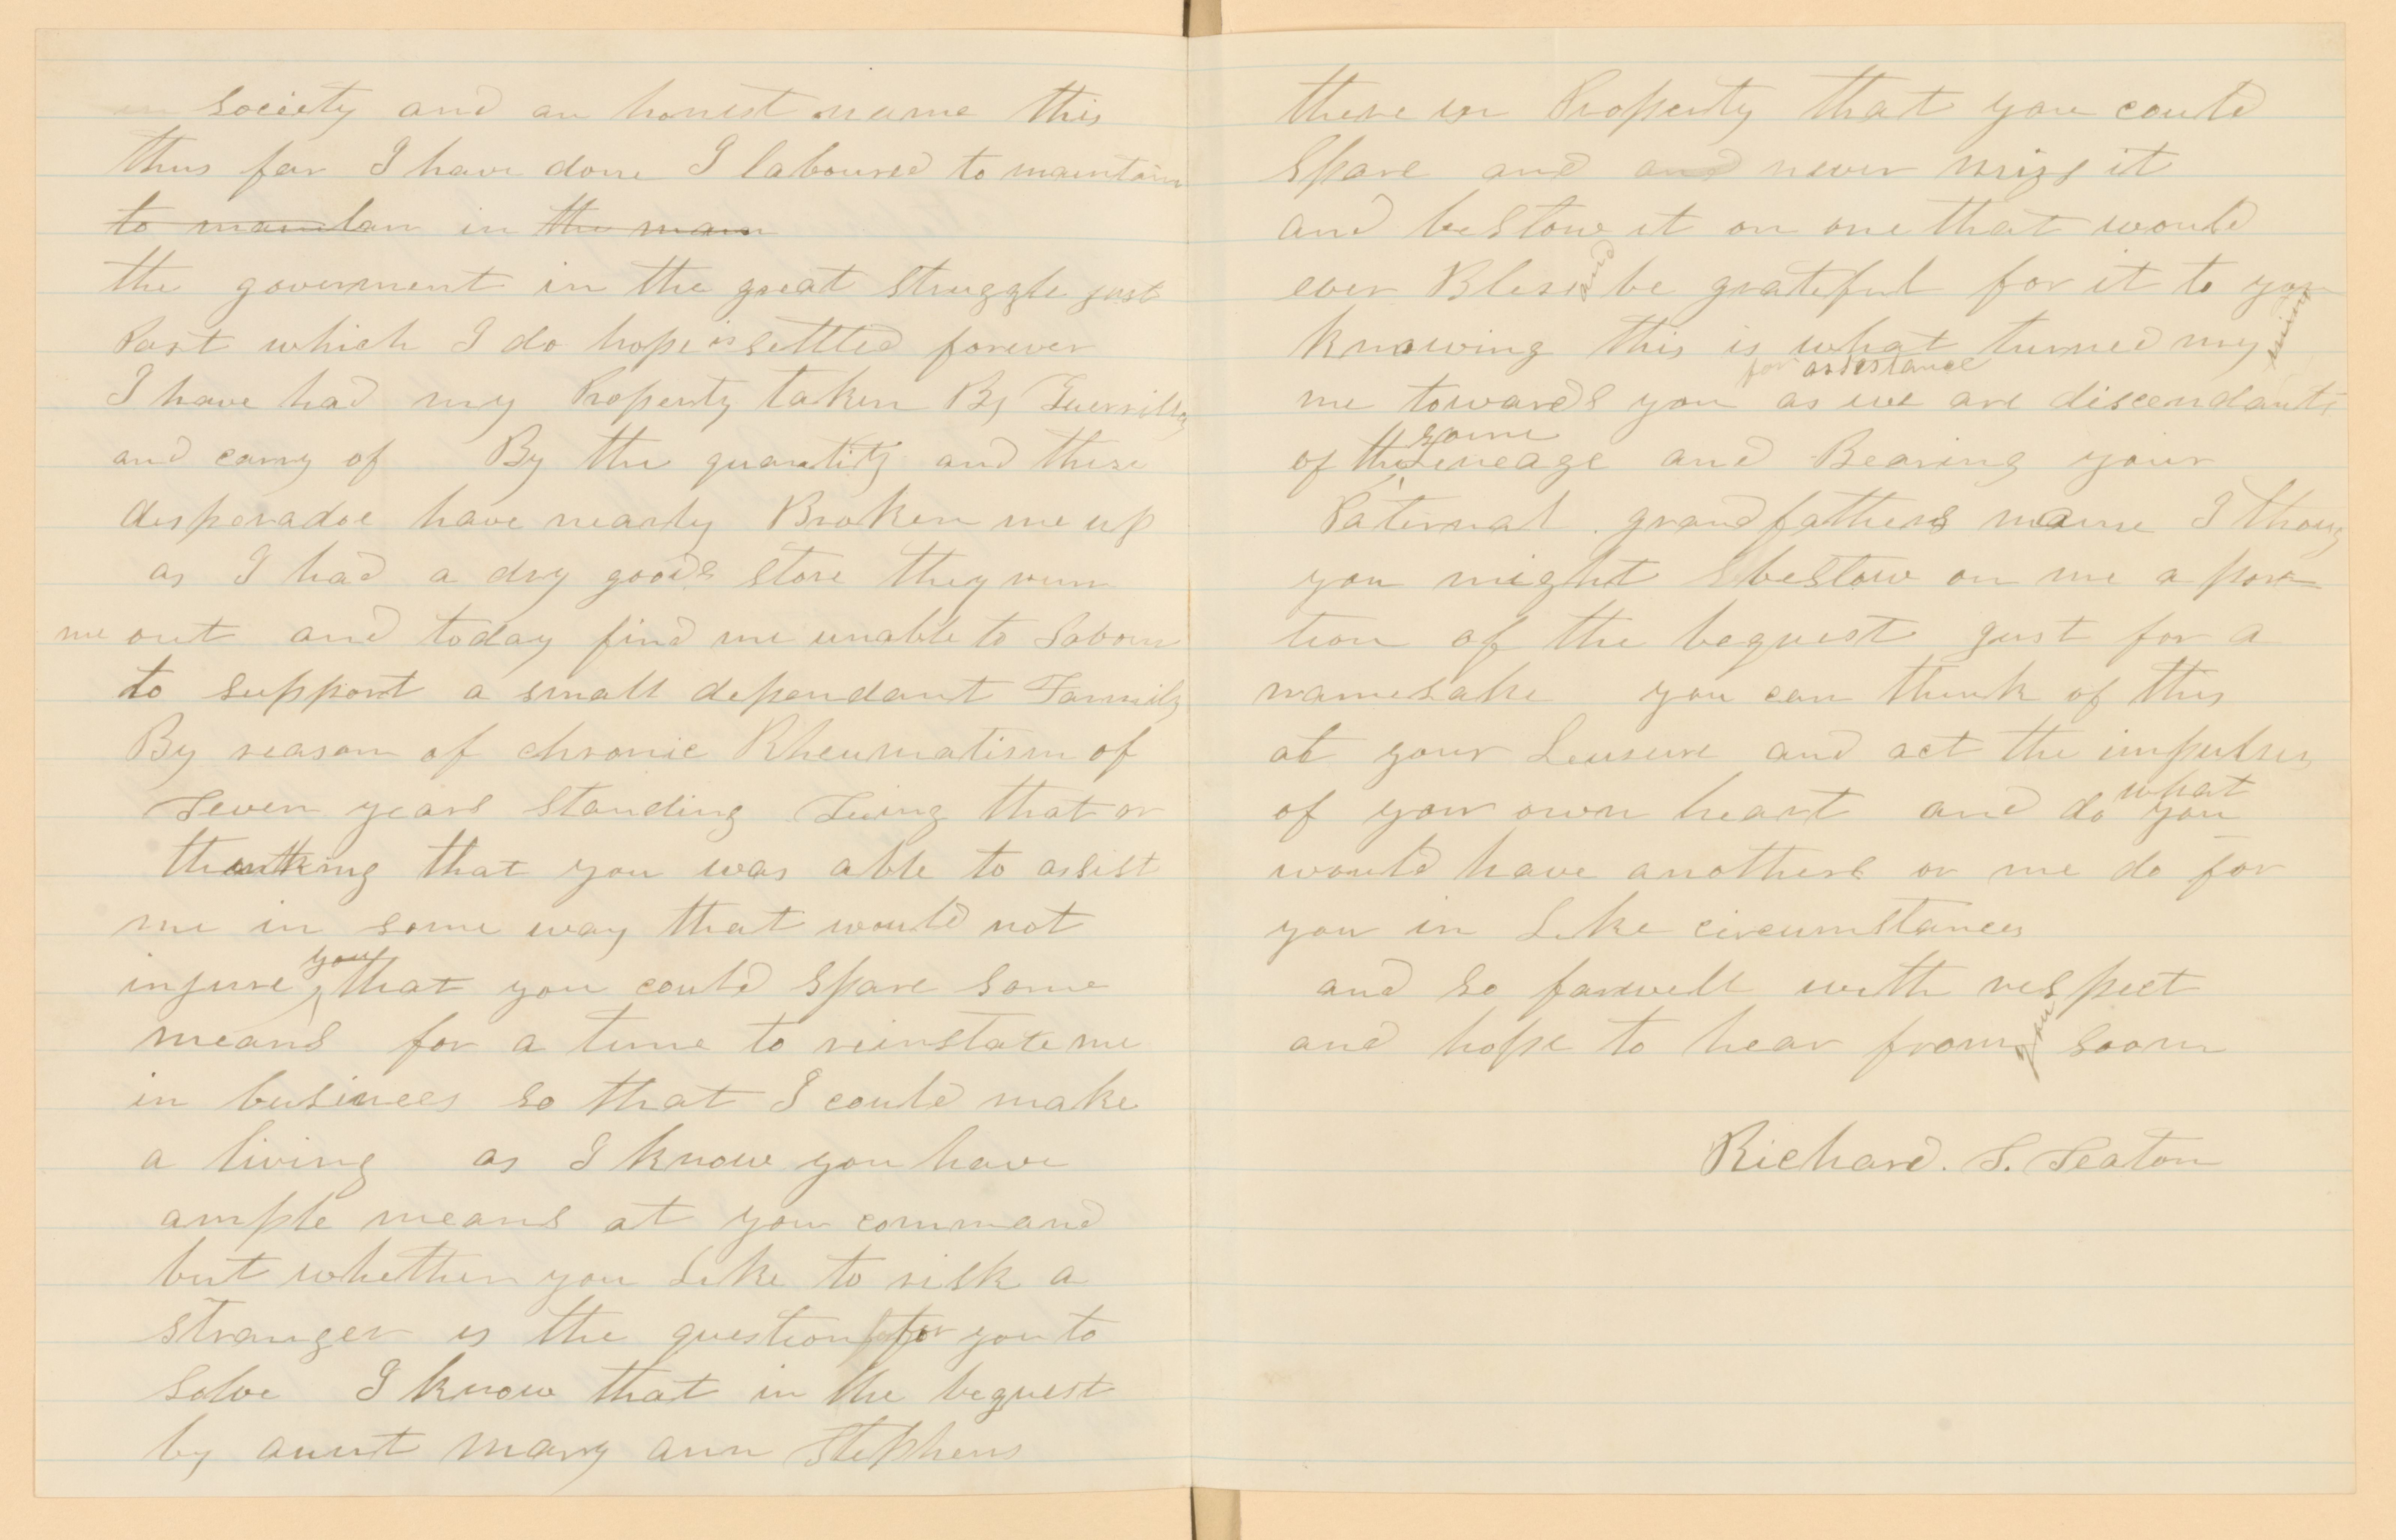 in society and an honest name this
thus far I have done I laboured to maintain
to maintan in the main
the goverment in the great struggle just
Past which I do hope is settled forever
I have had my Property taken By Guerrillas
and carry of By the quantity and these
desperadoe have nearly Broken me up
as I had a dry goods store they run
me out and today find me unable to Labour
to support a small dependant Family
By reason of chronic Rheumatism of
Seven years standing Seing that or
thinking that you was able to assist
me in some way that would not
injure you that you could spare some
means for a time to reinstate me
in business so that I could make
a living as I know you have
ample means at your command
but whether you Like to risk a
stranger is the question for you to
solve I know that in the bequest
by aunt mary ann Stephens
there is Property that you could
spare and and never miss it
and bestow it on one that would
ever Bless and be grateful for it to you
Knowing this is what turned my mind
me towards you for assistance as we are discendants
of the same Leneage and Bearing your
Paternal grandfathers name I thoug
you might bestow on me a por
tion of the bequest just for a
namesake you can think of this
at your Leusure and act the impulses
of your own heart and do what you
would have anothers or me do for
you in Like circumstances
and so farwell with respect
and hope to hear from you soon
Richard. S. Seaton